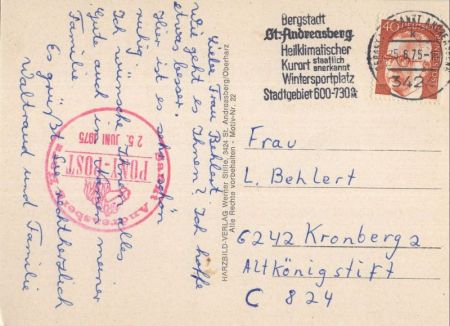 Liebe Frau Behlert
wie geht es Ihnen? Ich hoffe
etwas besser.
Hier ist es sehr schön
ruhig.
Ich wünsche Ihnen alles
Gute auch im Namen meiner
Familie
Es grüßt Sie recht herzlich
Waltraud und Familie
Sankt Andreasberg
PONY-POST
25. JUNI 1975
HARZBILD-VERLAG Werner 3424 St. Andreasberg/Oberharz
Alle Rechte vorbehalten - Motiv-Nr. 22
Bergstadt
St. Andreasberg
Heilklimatischer
Kurort staatlich anerkannt
Wintersportplatz
Stadtgebiet 600-730m
25.6.75
342
40
Frau
L. Behlert
6242 Kronberg 2
Altkönigstift
C 824